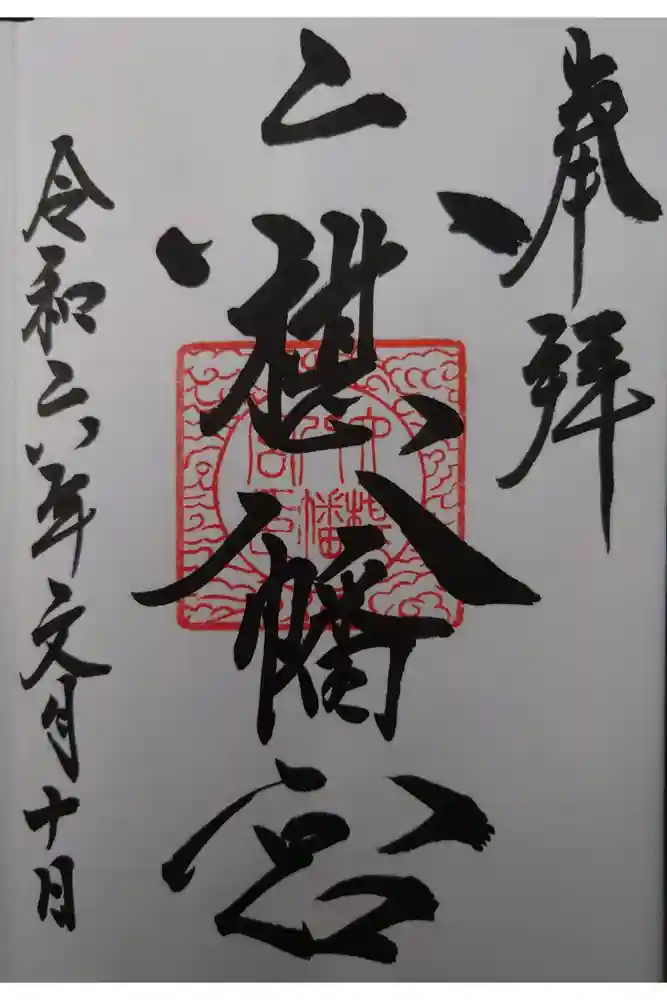 奉拝
六椹八幡宮
六椹八幡宮印
令和六年文月十日